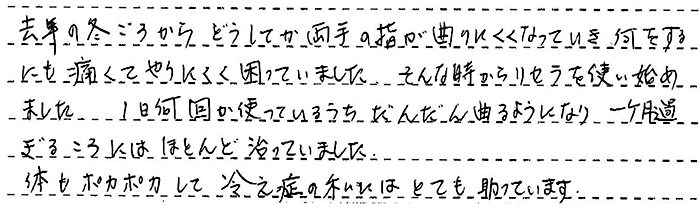 去年の冬ごろからどうしてか両手の指が曲りにくくなっていき何をする
にも痛くてやりにくく困っていました。そんな時からリセラを使い始め
ました 1日何回か使っているうちだんだん曲るようになり 一ヶ月過
ぎるころにはほとんど治っていました。
体もポカポカして冷え症の私にはとても助っています。